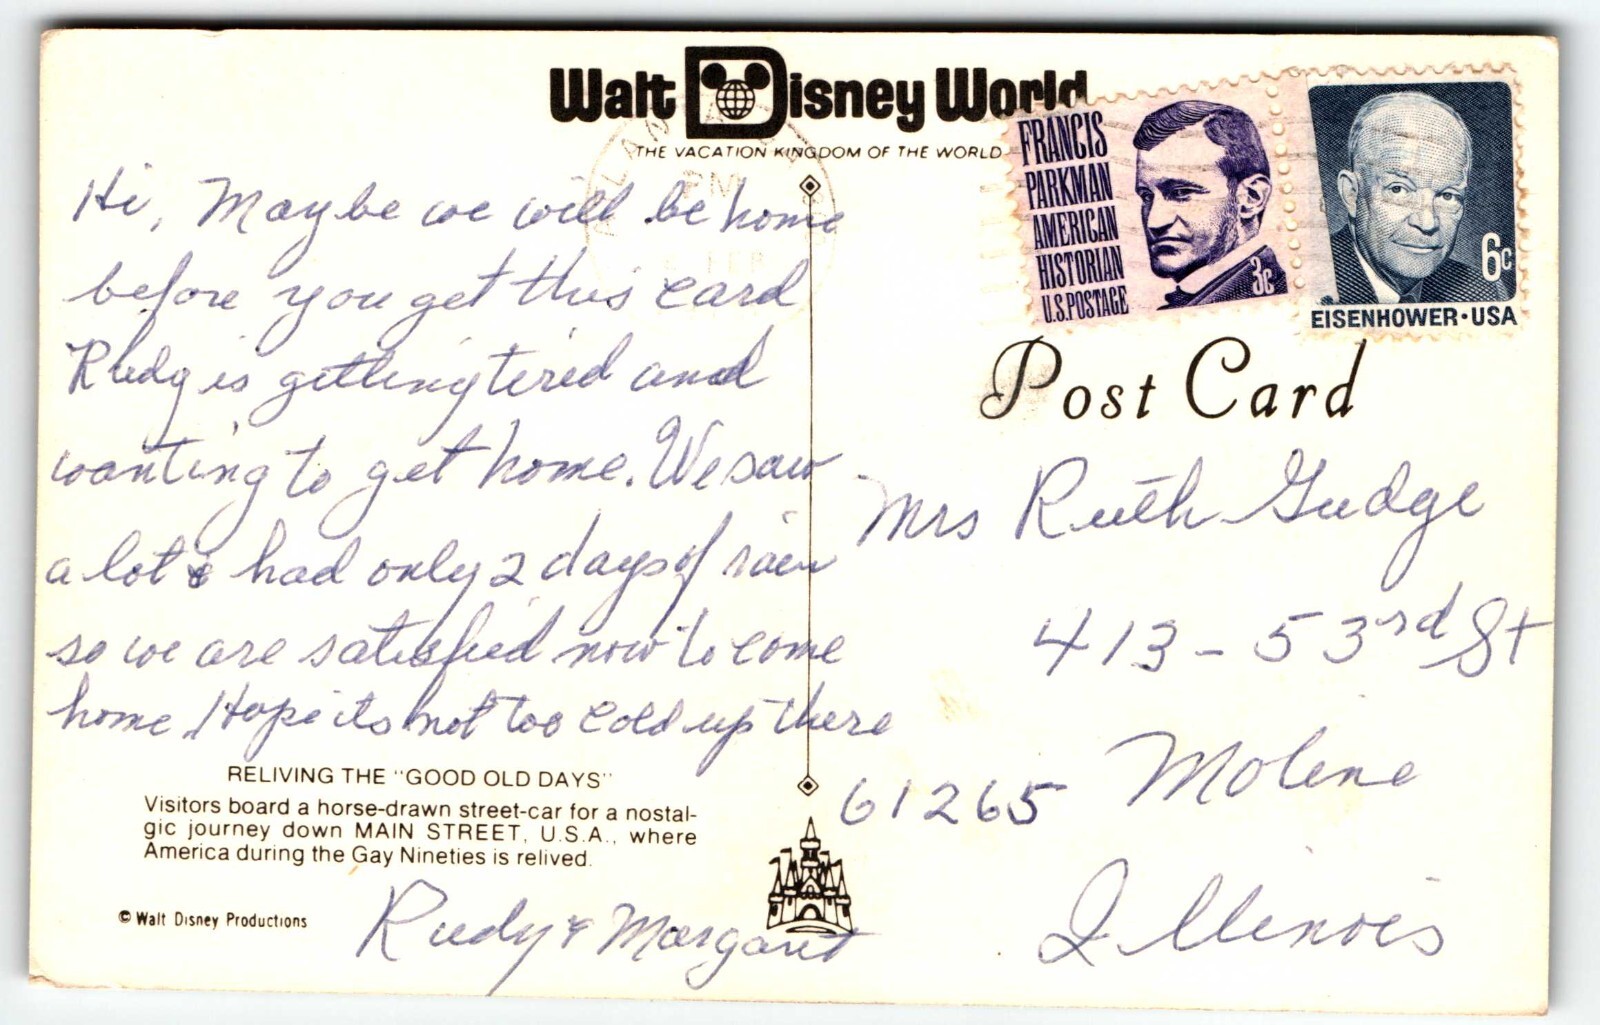 Walt Disney World
THE VACATION KINGDOM OF THE WORLD
FRANCIS
PARKMAN
AMERICAN
HISTORIAN
U.S. POSTAGE
3c
6c
EISENHOWER · USA
PM
Post Card
Hi, Maybe we will be home
before you get this card
Rudy is getting tired and
wanting to get home. We saw
a lot & had only 2 days of rain
so we are satisfied now to come
home. Hope its not too cold up there
Rudy & Margaret
Mrs Ruth Gudge
413 - 53rd St
Moline
61265
Illinois
RELIVING THE "GOOD OLD DAYS"
Visitors board a horse-drawn street-car for a nostal-
gic journey down MAIN STREET, U.S.A., where
America during the Gay Nineties is relived.
© Walt Disney Productions